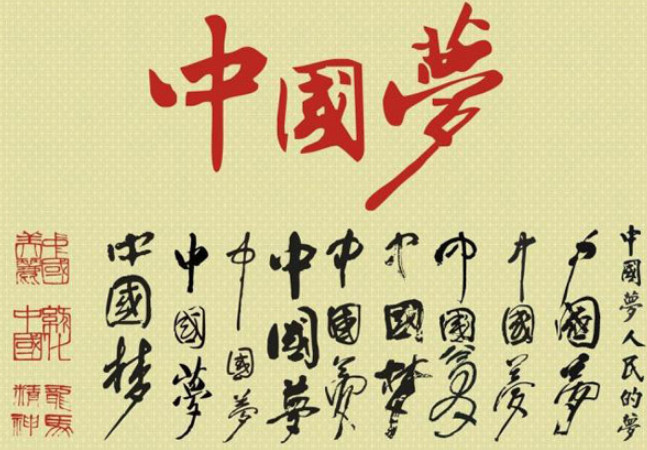 中國夢
中國夢人民的夢
中國夢
中國夢
中國夢
中國梦
中國夢
中國夢
中國夢
中國夢
中國梦
中國
美麗
中國
龍馬
精神